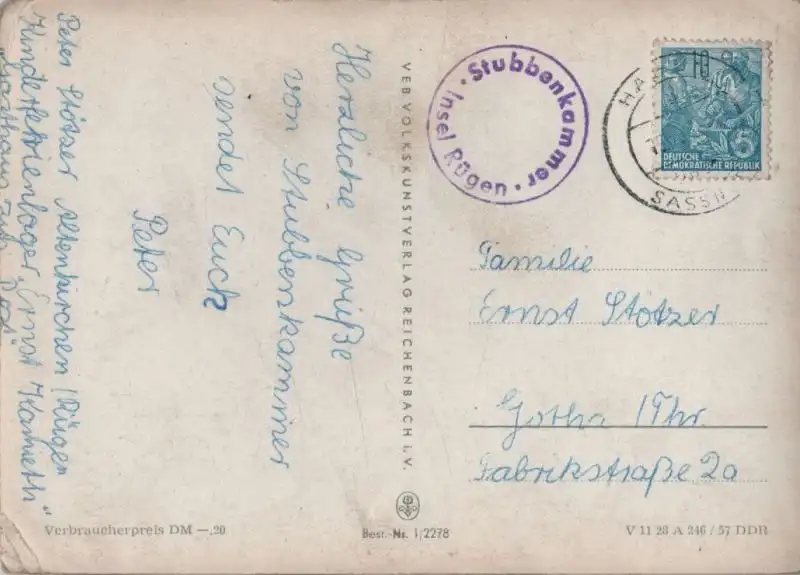 Peter Stötzer Altenkirchen / Rügen
Kinderferienlager „Ernst Kamieth“
Gasthaus zur Post“
Herzliche Grüße
von Stubbenkammer
sendet Euch
Peter
VEB VOLKSKUNSTVERLAG REICHENBACH i. V.
Stubbenkammer
Insel Rügen
SASSN
DEUTSCHE
DEMOKRATISCHE REPUBLIK
Familie
Ernst Stötzer
Gotha / Thr.
Fabrikstraße 2a
Verbraucherpreis DM —,20
Best.-Nr. 1/2278
V 11 28 A 246 / 57 DDR